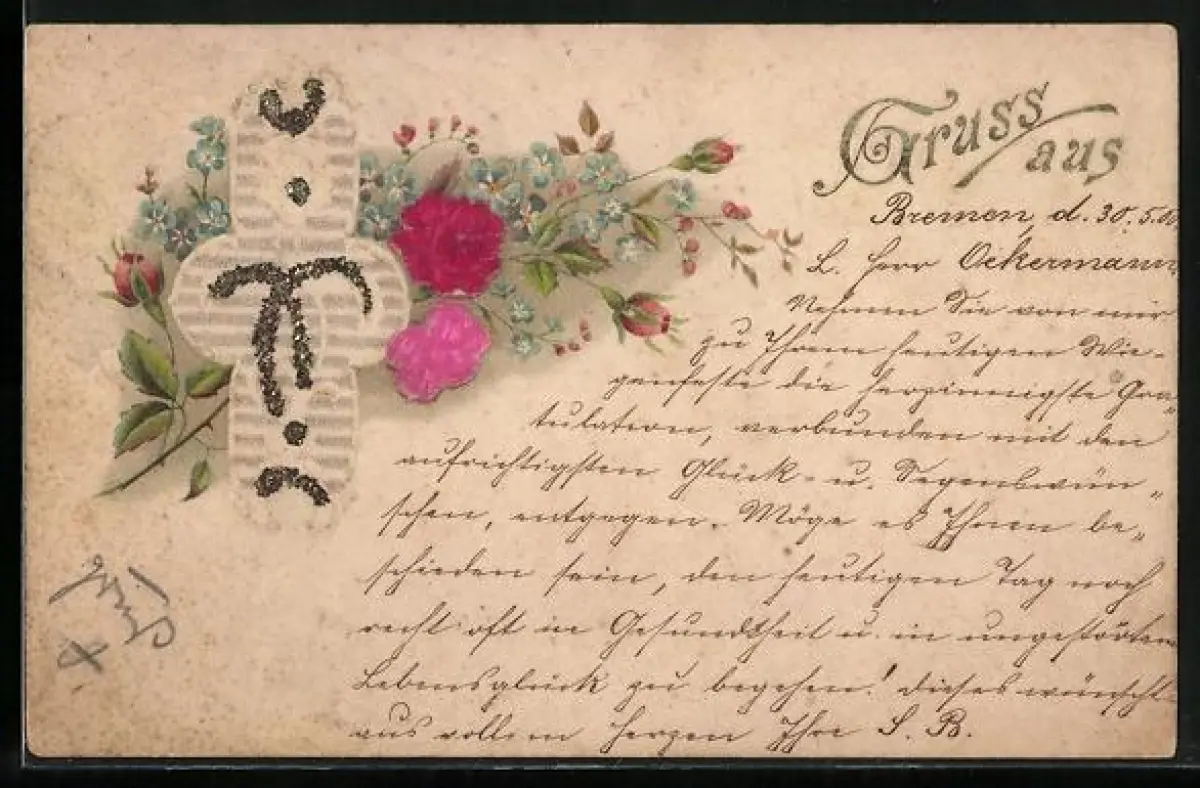 Gruss
aus
Bremen, d. 30.5.
L. Herr Ockermann
Nehmen Sie von mir
zu Ihrem heutigen Wie-
genfeste die herzinnigste Gra„
tulation, verbunden mit den
aufrichtigsten Glück- u. Segenswün„
schen, entgegen. Möge es Ihnen be„
schieden sein, den heutigen Tag noch
recht oft in Gesundheit u. in ungestörtem
Lebensglück zu begehen! dieses wünscht
aus vollem Herzen Ihre S. B.